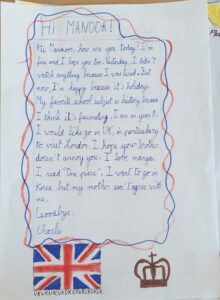 HI MANOOR!
Hi Manoor, how are you today? I'm
fine and I hope you too. Yesterday, I didn't
watch anything because I was tired. But
now, I'm happy because it's holidays.
My favorite school subject is history because
I think it's fascinating. I am in year 8.
I would like go in UK, in particulary
to visit London. I hope your brother
doesn't annoy you. I love manga.
I read "One piece". I want to go in
Korea but my mother isn't agree with
me.
Goodbye,
Charlie